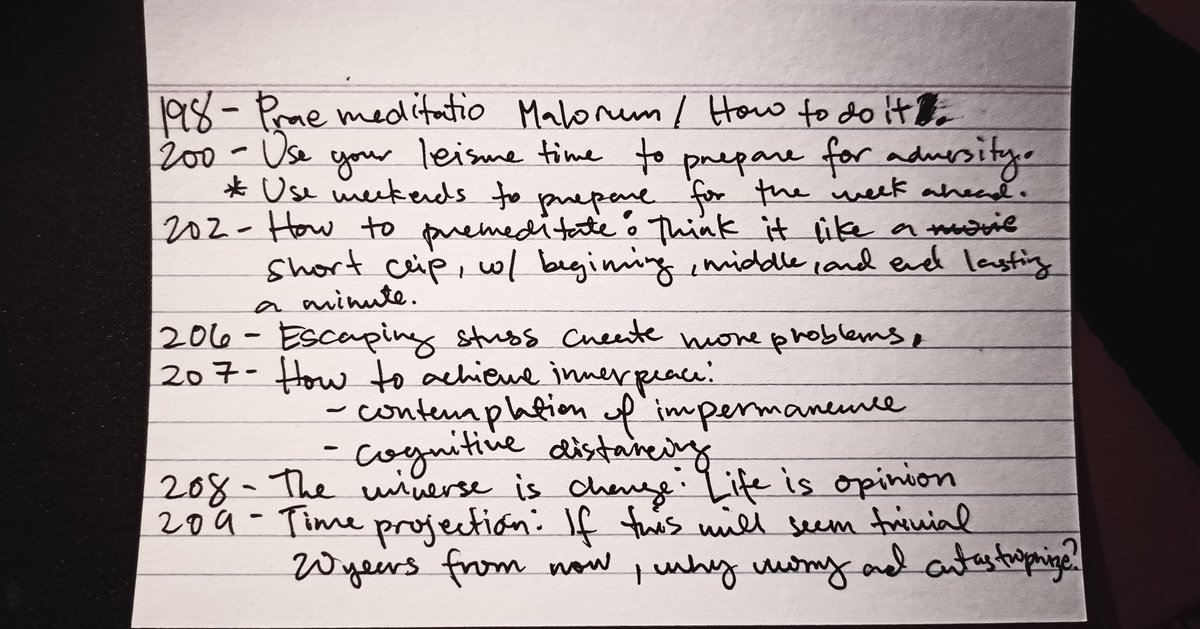 198 - Prae meditatio Malorum / How to do it.
200 - Use your leisure time to prepare for adversity.
* Use weekends to prepare for the week ahead.
202 - How to premeditate: Think it like a movie
short clip, w/ begining, middle, and end lasting
a minute.
206 - Escaping stress create more problems.
207 - How to achieve inner peace:
- contemplation of impermanence
- cognitive distancing
208 - The universe is change: Life is opinion
209 - Time projection: If this will seem trivial
20 years from now, why worry and catastrophize?